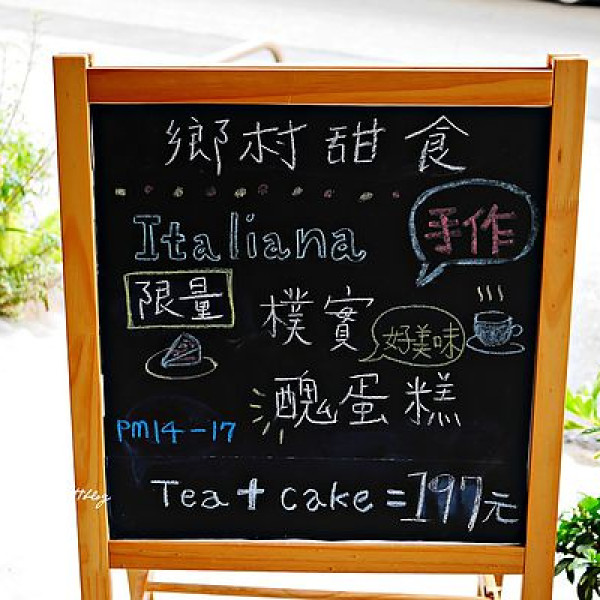 鄉村甜食
Italiana
手作
限量
樸實
好美味
醜蛋糕
PM14-17
Tea + cake = 197元